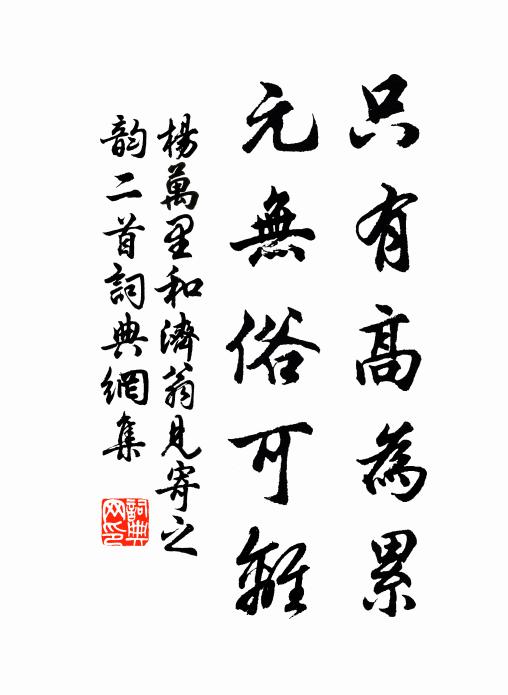 只有高為累
元無俗可離
楊萬里和濟翁見寄之
韵二首詞典網集
詞典
网印